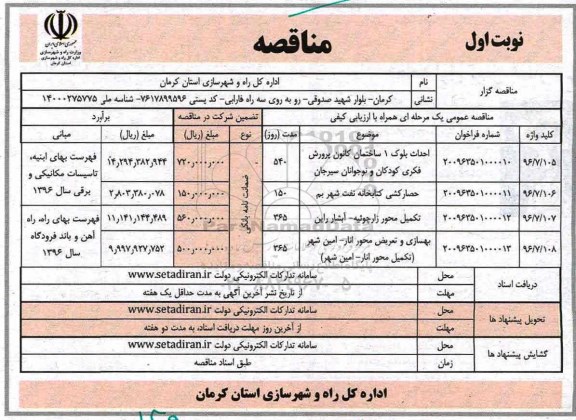 نوبت اول
مناقصه
جمهوری اسلامی ایران
وزارت راه و شهرسازی
اداره کل راه و شهرسازی
استان کرمان
مناقصه گزار
نام
اداره کل راه و شهرسازی استان کرمان
نشانی
کرمان- بلوار شهید صدوقی- رو به روی سه راه فارابی- کد پستی ۷۶۱۷۸۹۹۵۹۶- شناسه ملی ۱۴۰۰۰۲۷۵۷۷۵
مناقصه عمومی یک مرحله ای همراه با ارزیابی کیفی
تضمین شرکت در مناقصه
برآورد
کلید واژه
شماره فراخوان
موضوع
مدت (روز)
نوع
مبلغ (ریال)
مبلغ (ریال)
مبانی
۹۶/۷/۱۰۵
۲۰۰۹۶۳۵۰۱۰۰۰۰۱۰
احداث بلوک ۱ ساختمان کانون پرورش فکری کودکان و نوجوانان سیرجان
۵۴۰
ضمانت نامه بانکی
۷۲۰,۰۰۰,۰۰۰
۱۴,۲۹۴,۳۸۲,۹۴۴
فهرست بهای ابنیه، تاسیسات مکانیکی و برقی سال ۱۳۹۶
۹۶/۷/۱۰۶
۲۰۰۹۶۳۵۰۱۰۰۰۰۱۱
حصارکشی کتابخانه نفت شهر بم
۱۵۰
۱۵۰,۰۰۰,۰۰۰
۲,۸۰۳,۳۸۰,۰۷۸
۹۶/۷/۱۰۷
۲۰۰۹۶۳۵۰۱۰۰۰۰۱۲
تکمیل محور زارچوئیه- آبشار راین
۳۶۵
۵۶۰,۰۰۰,۰۰۰
۱۱,۱۴۱,۱۴۴,۴۸۹
فهرست بهای راه، راه آهن و باند فرودگاه سال ۱۳۹۶
۹۶/۷/۱۰۸
۲۰۰۹۶۳۵۰۱۰۰۰۰۱۳
بهسازی و تعریض محور انار- امین شهر (تکمیل محور انار- امین شهر)
۳۶۵
۵۰۰,۰۰۰,۰۰۰
۹,۹۹۷,۹۳۷,۷۵۲
دریافت اسناد
محل
سامانه تدارکات الکترونیکی دولت www.setadiran.ir
مهلت
از تاریخ نشر آخرین آگهی به مدت حداقل یک هفته
تحویل پیشنهاد ها
محل
سامانه تدارکات الکترونیکی دولت www.setadiran.ir
مهلت
از آخرین روز مهلت دریافت اسناد، به مدت دو هفته
گشایش پیشنهاد ها
محل
سامانه تدارکات الکترونیکی دولت www.setadiran.ir
زمان
طبق اسناد مناقصه
اداره کل راه و شهرسازی استان کرمان